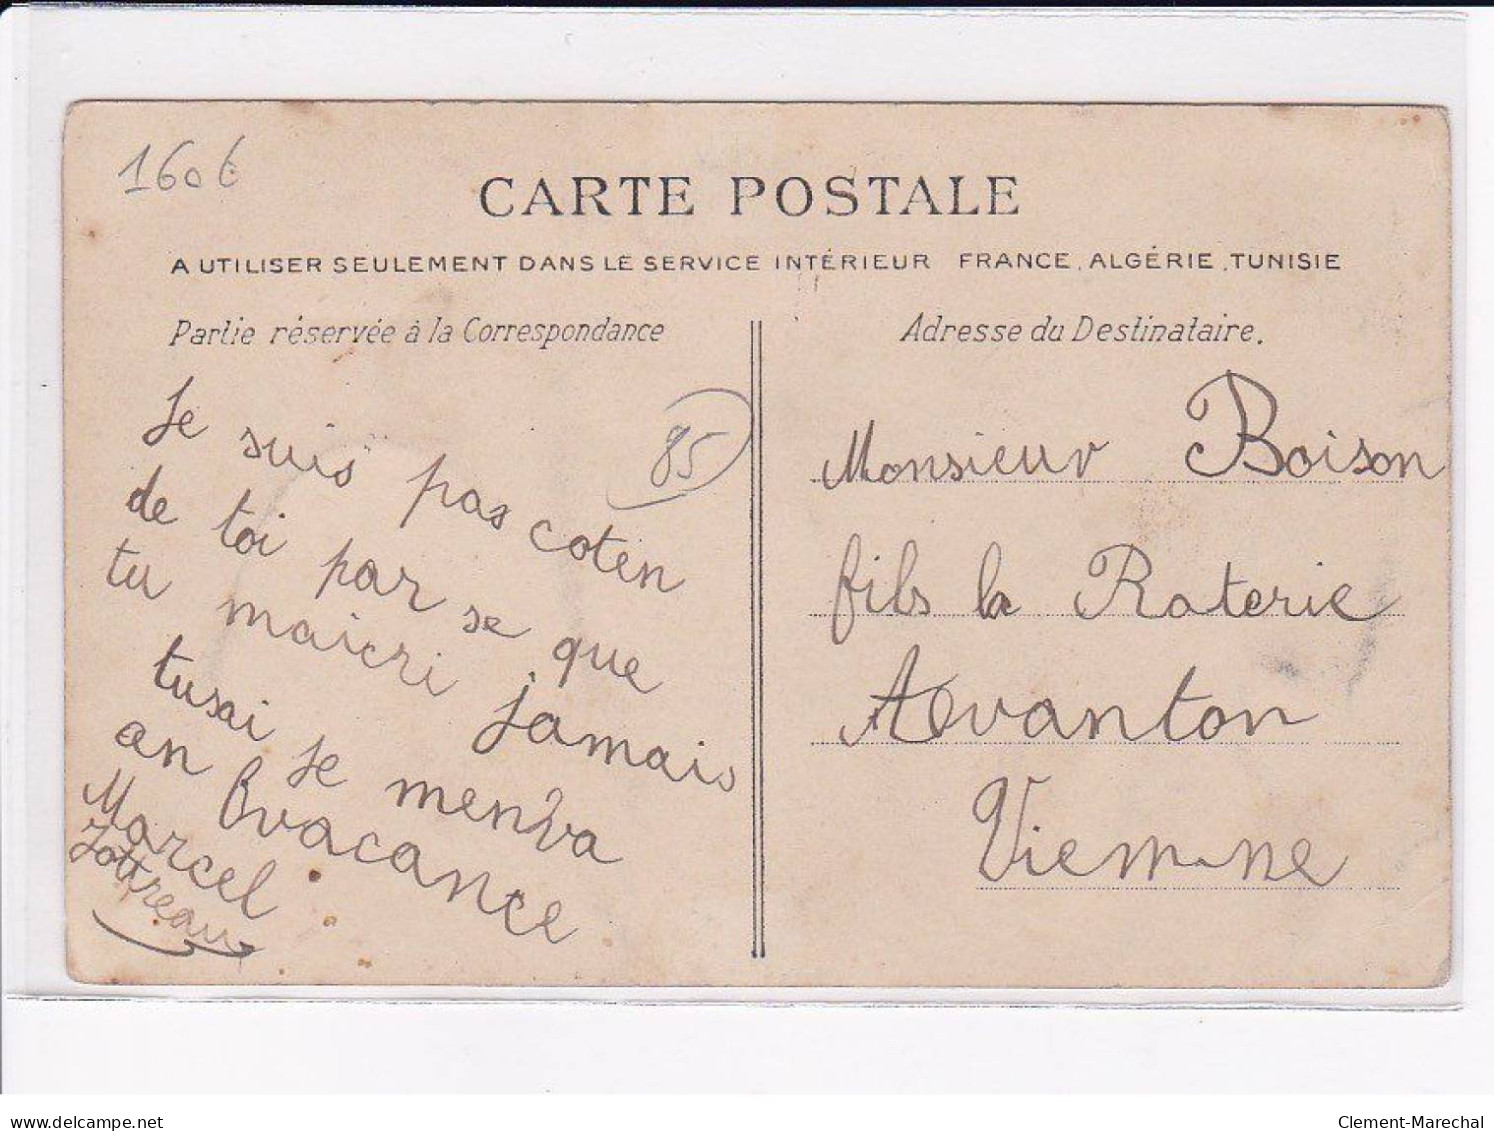 160€
CARTE POSTALE
A UTILISER SEULEMENT DANS LE SERVICE INTÉRIEUR FRANCE, ALGÉRIE, TUNISIE
Partie réservée à la Correspondance
Je suis pas coten
de toi par se que
tu maicri jamais
tusai je menva
an vacance
Marcel
85
Adresse du Destinataire.
Monsieur Boison
fils la Raterie
Avanton
Vienne
delcampe.net
Clement-Marechal